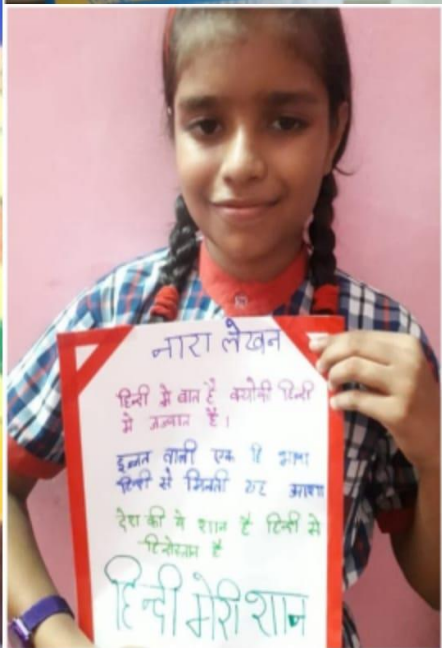 नारा लेखन
हिन्दी मे बात है क्योकी हिन्दी
मे जज्बात है।
इज्जत वाली एक हि भाषा
हिन्दी से मिलती हर आशा
देश की ये शान है हिन्दी से
हिन्दोस्तान है
हिन्दी मेरी शान